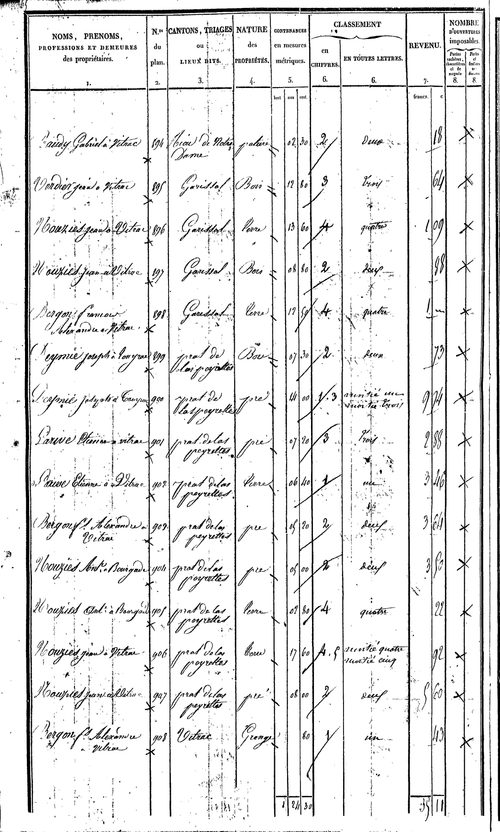 NOMS, PRENOMS, PROFESSIONS ET DEMEURES des propriétaires. N.os du plan. CANTONS, TRIAGES ou LIEUX DITS. NATURE des PROPRIÉTÉS. CONTENANCES en mesures métriques. CLASSEMENT en CHIFFRES. EN TOUTES LETTRES. REVENU. NOMBRE D'OUVERTURES imposables.
1. 2. 3. 4. 5. 6. 6. 7. 8. 8.
Gabriel à Vitrac 894 de Notre Dame pature 02 30 2 deux 18
Verdier jean à Vitrac 895 Garissal Bois 12 80 3 trois 64
Mouziès jean à Vitrac 896 Garissal Terre 13 60 4 quatre 1 09
Mouziès jean à Vitrac 897 Garissal Bois 08 80 2 deux 88
Bergon francois Alexandre à Vitrac 898 Garissal Terre 12 50 4 quatre 1
joseph à 899 prat de las peyrettes Bois 07 30 2 deux 73
joseph à 900 prat de las peyrettes pré 14 00 1/3 moitié un moitié trois 9 74
Larive Etienne à vitrac 901 prat de las peyrettes pré 07 20 3 trois 2 88
Larive Etienne à Vitrac 902 prat de las peyrettes Terre 06 40 1 un 3 46
Bergon f.s Alexandre à Vitrac 903 prat de las peyrettes pré 05 20 2 deux 3 64
Mouziès Ant.e à Bourgade 904 prat de las peyrettes pré 05 00 2 deux 3 50
Mouziès Ant.e à Bourgade 905 prat de las peyrettes Terre 02 80 4 quatre 22
Mouziès jean à Vitrac 906 prat de las peyrettes Terre 17 60 4.5 moitié quatre moitié cinq 92
Mouziès jean à Vitrac 907 prat de las peyrettes pré 08 00 2 deux 5 60
Bergon f.s Alexandre à vitrac 908 Vitrac Grange 80 1 un 43
1 24 30 35 11